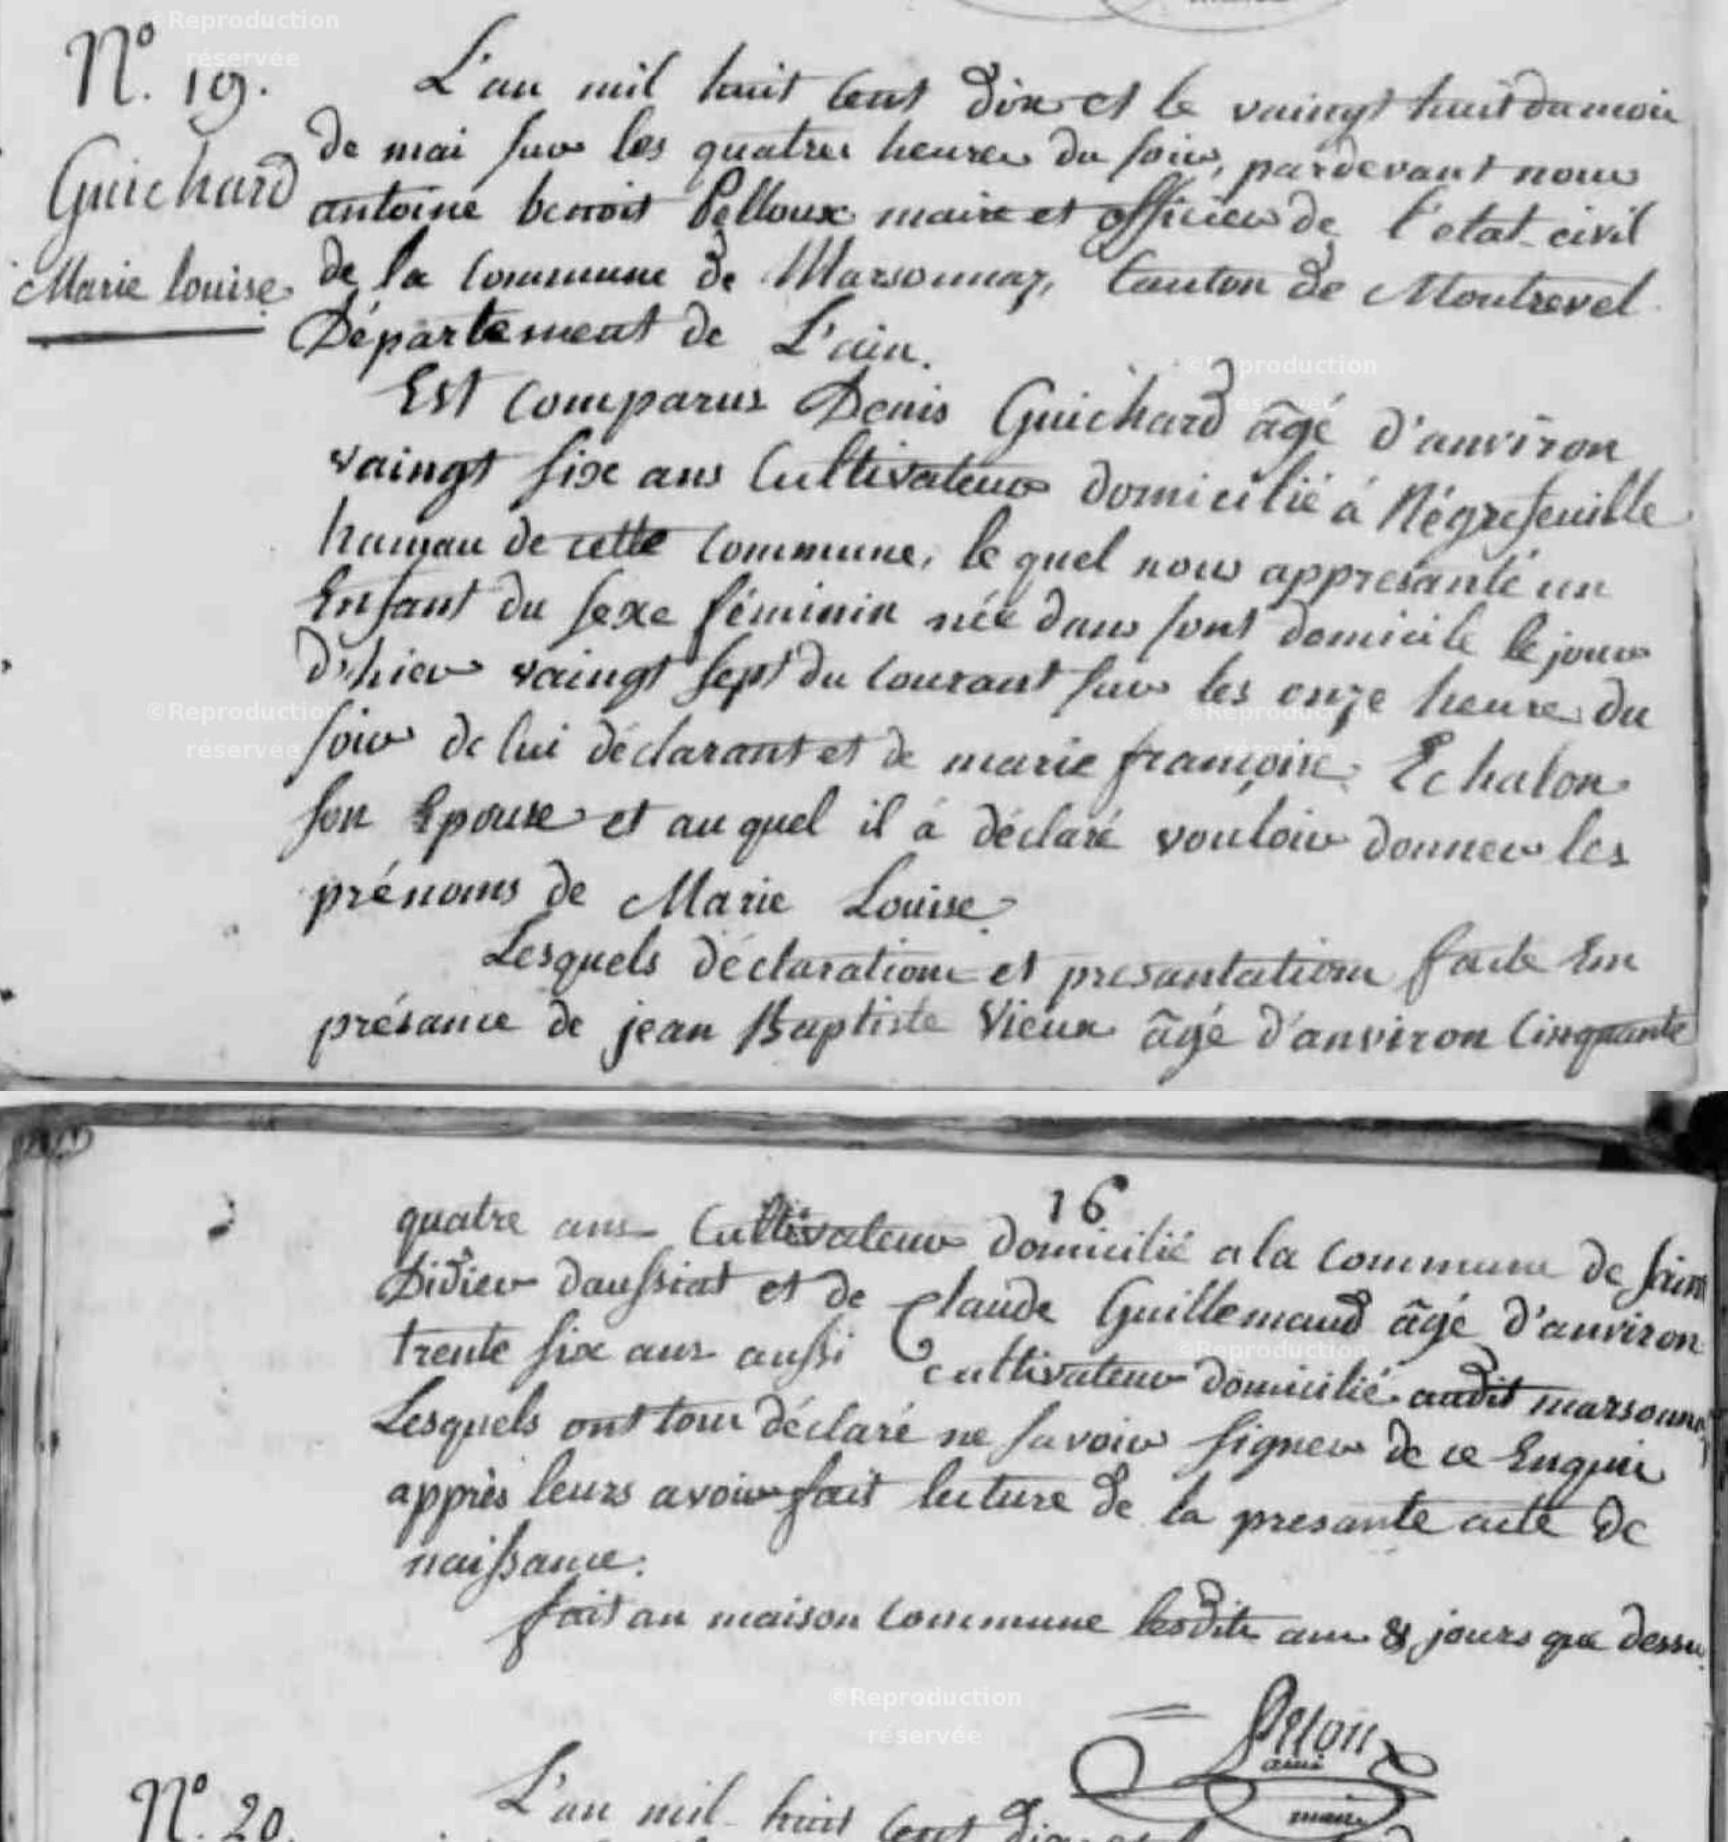 N.º 19.
Guichard
Marie louise
L'an mil huit cent dix et le vaingt huit du mois
de mai sur les quatres heures du soir, pardevant nous
antoine benoit Pelloux maire et officier de l'etat civil
de la commune de Marsonnaz, Canton de Montrevel
Département de L'ain.
Est comparus Denis Guichard âgé d'anviron
vaingt six ans Cultivateur domicilié à Négrefeuille
hamau de cette commune, le quel nous appresanté un
Enfant du sexe féminin née dans sont domicile le jour
d'hier vaingt sept du courant sur les onze heure du
soir de lui déclarant et de marie françoise Echalon
son Epouse et au quel il à déclaré vouloir donner les
prénoms de Marie Louise.
Lesquels déclarations et presantations faite En
présance de jean Baptiste Vieux âgé d'anviron Cinquante
16
quatre ans Cultivateur domicilié a la commune de saint
Didier daussiat et de Claude Guillemaud âgé d'anviron
trente six ans aussi cultivateur domicilié audit marsonnaz
Lesquels ont tous déclaré ne savoir signer de ce Enquis
apprès leurs avoir fait lecture de la presante acte de
naissance.
fait au maison commune lesdits ans & jours que dessu
Pelloux
maire
N.º 20.
L'an mil huit cent dix et le
©Reproduction
réservée
©Reproduction
réservée
©Reproduction
réservée
©Reproduction
réservée
©Reproduction
réservée
©Reproduction
réservée